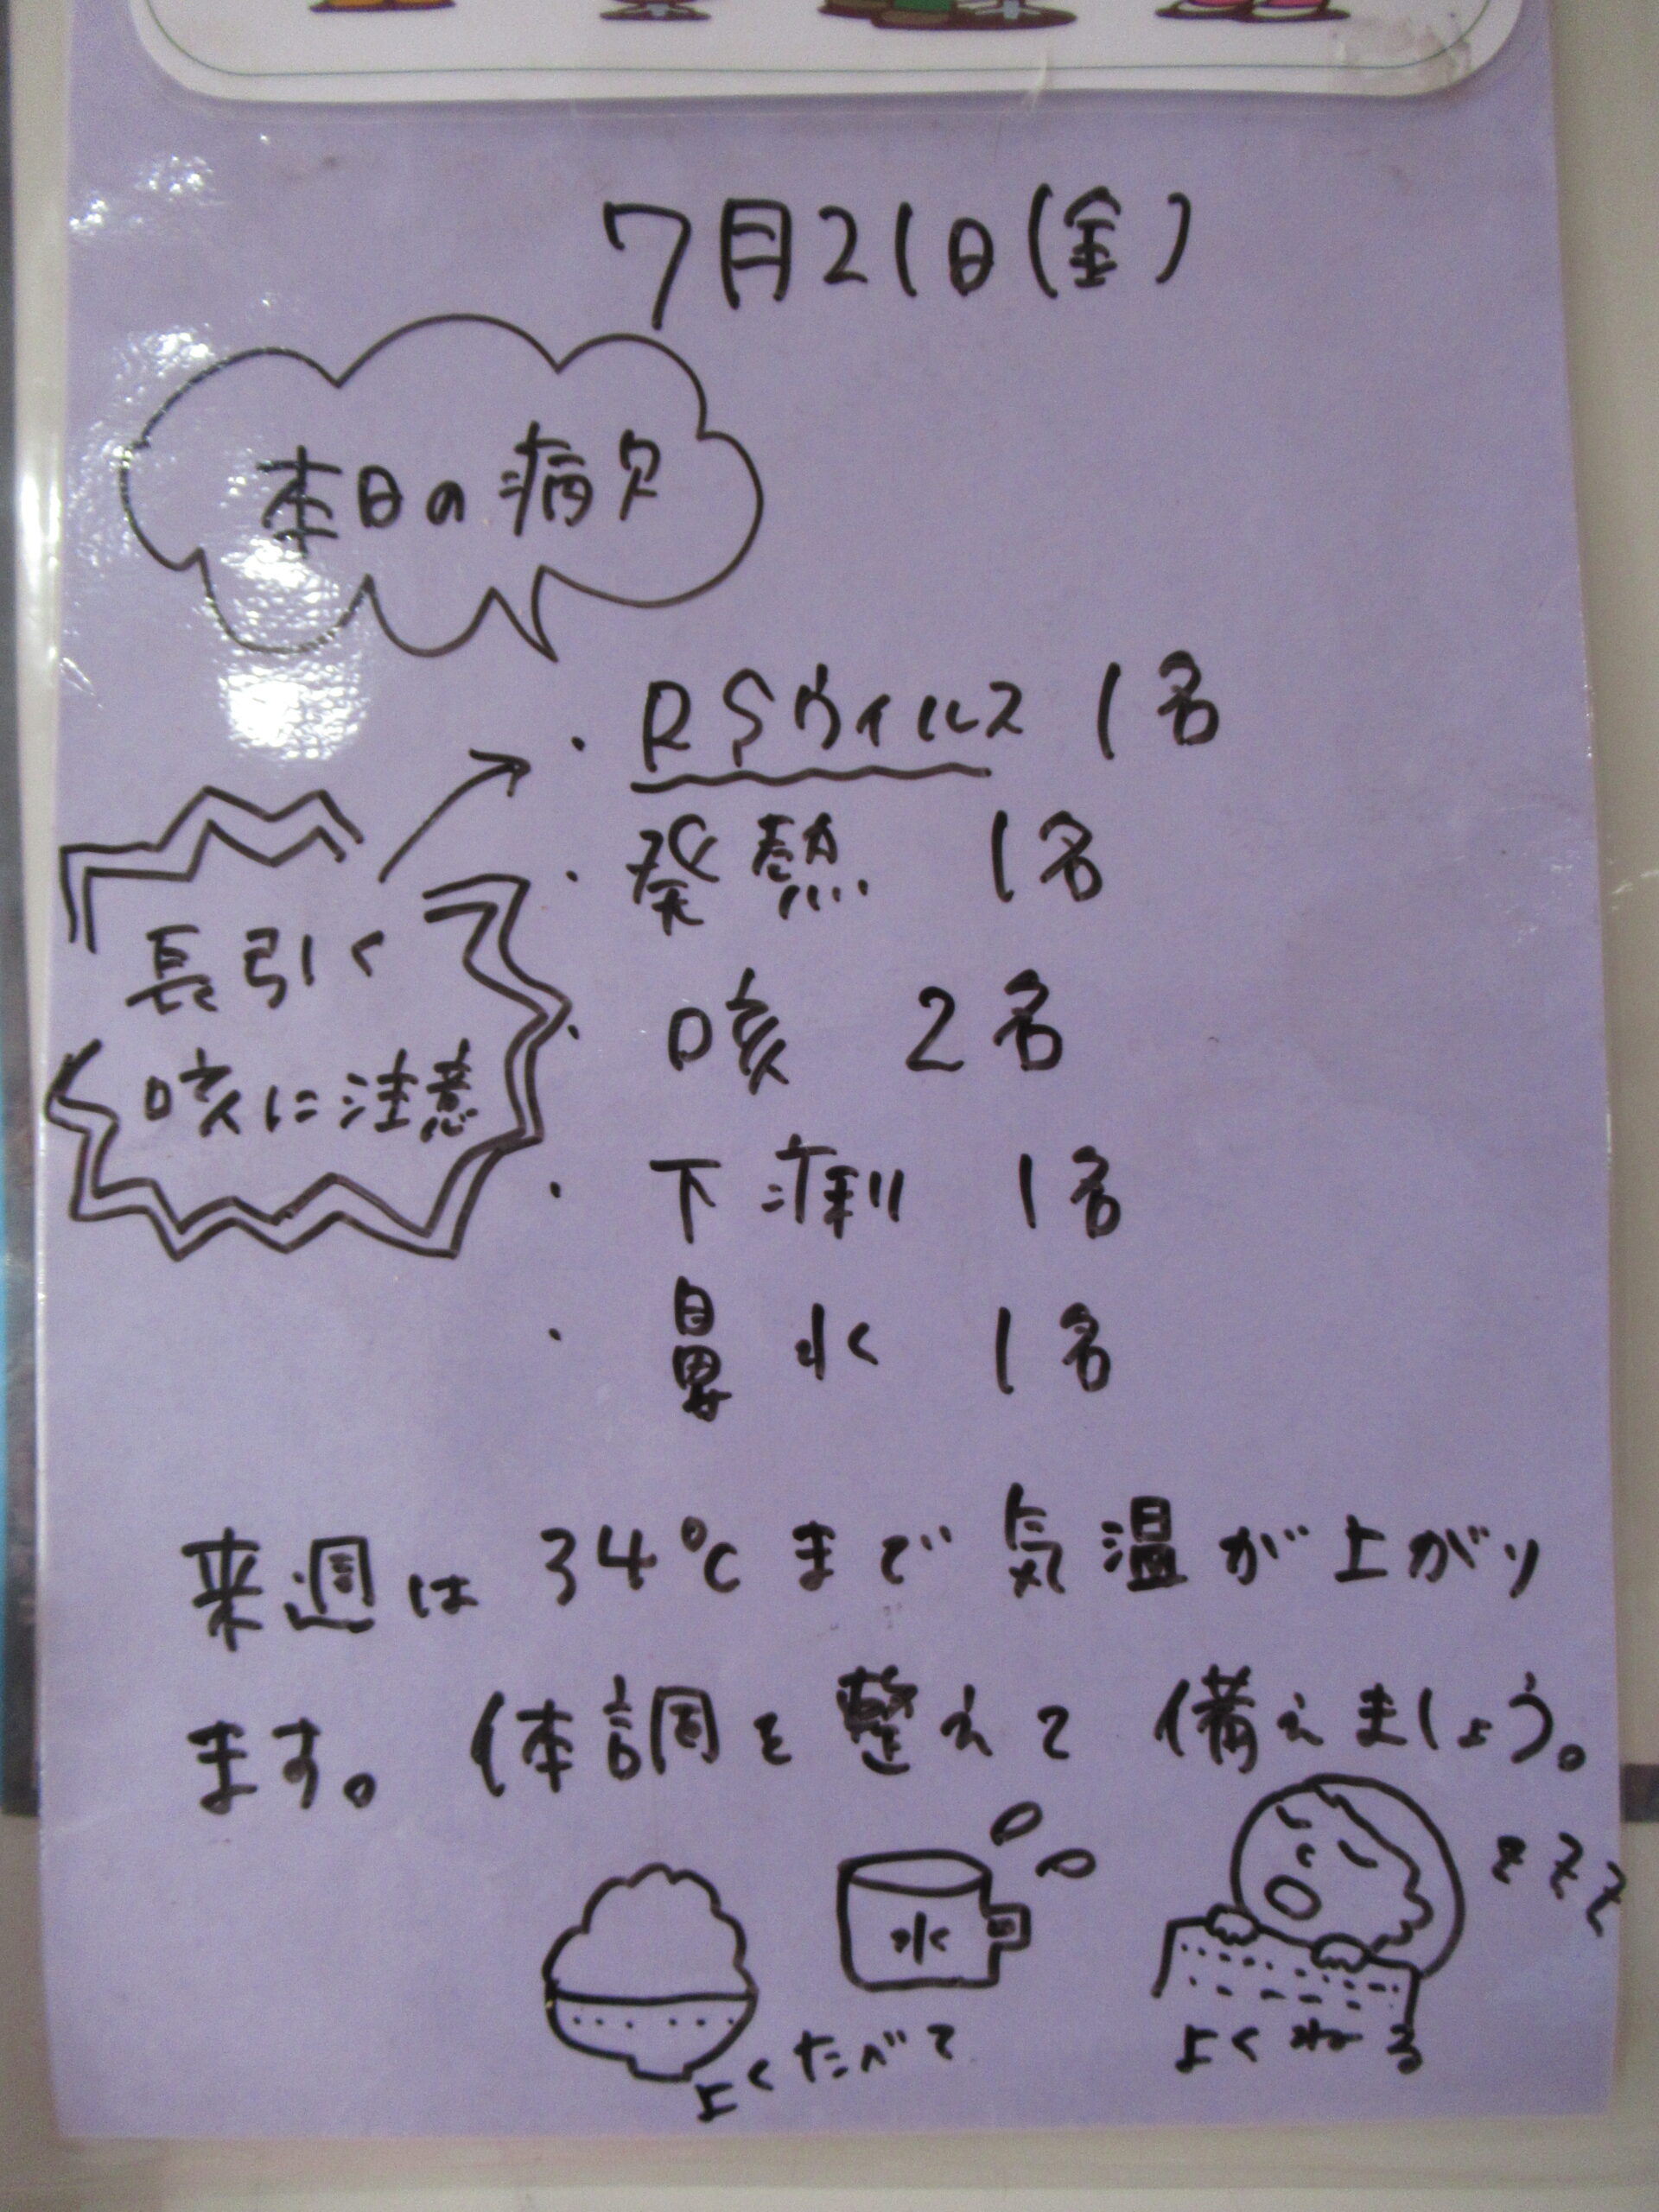 7月21日(金)
本日の病欠
・RSウイルス 1名
・発熱 1名
・咳 2名
・下痢 1名
・鼻水 1名
長引く
咳に注意
来週は34℃まで気温が上がり
ます。体調を整えて備えましょう。
水
zzz
よくたべて
よくねる